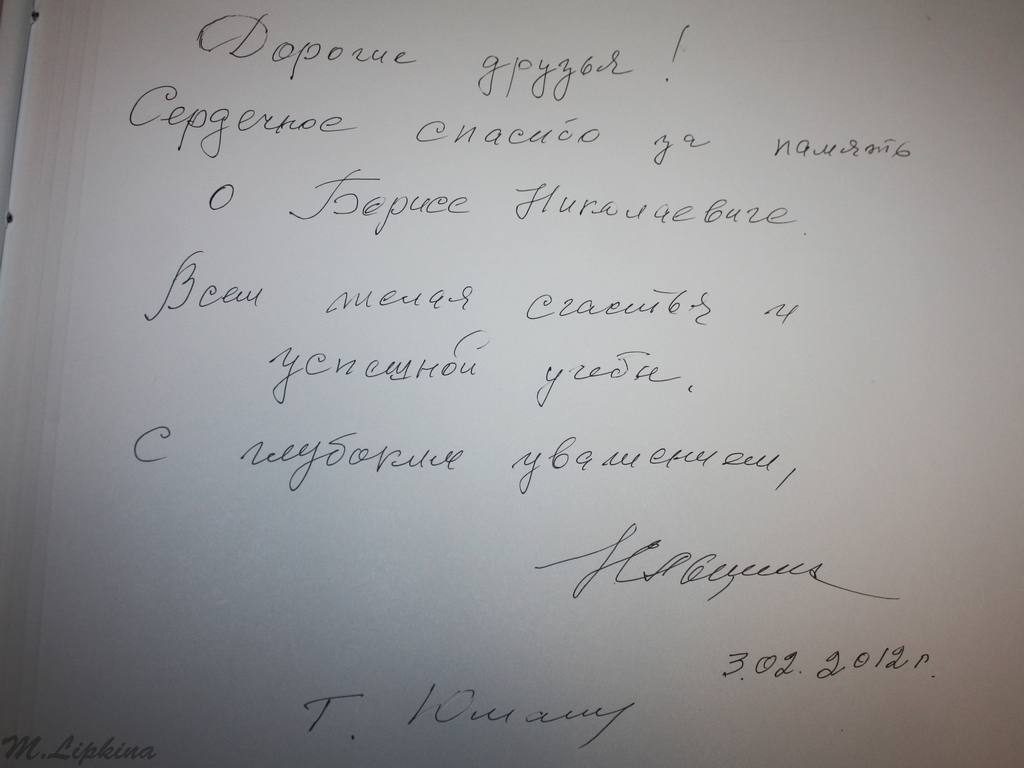 Дорогие друзья!
Сердечное спасибо за память
о Борисе Николаевиче.
Всем желая счастья и
успешной учебы.
С глубоким уважением,
НЕльцина
3.02.2012г.
Т. Юмашу
M.Lipkina